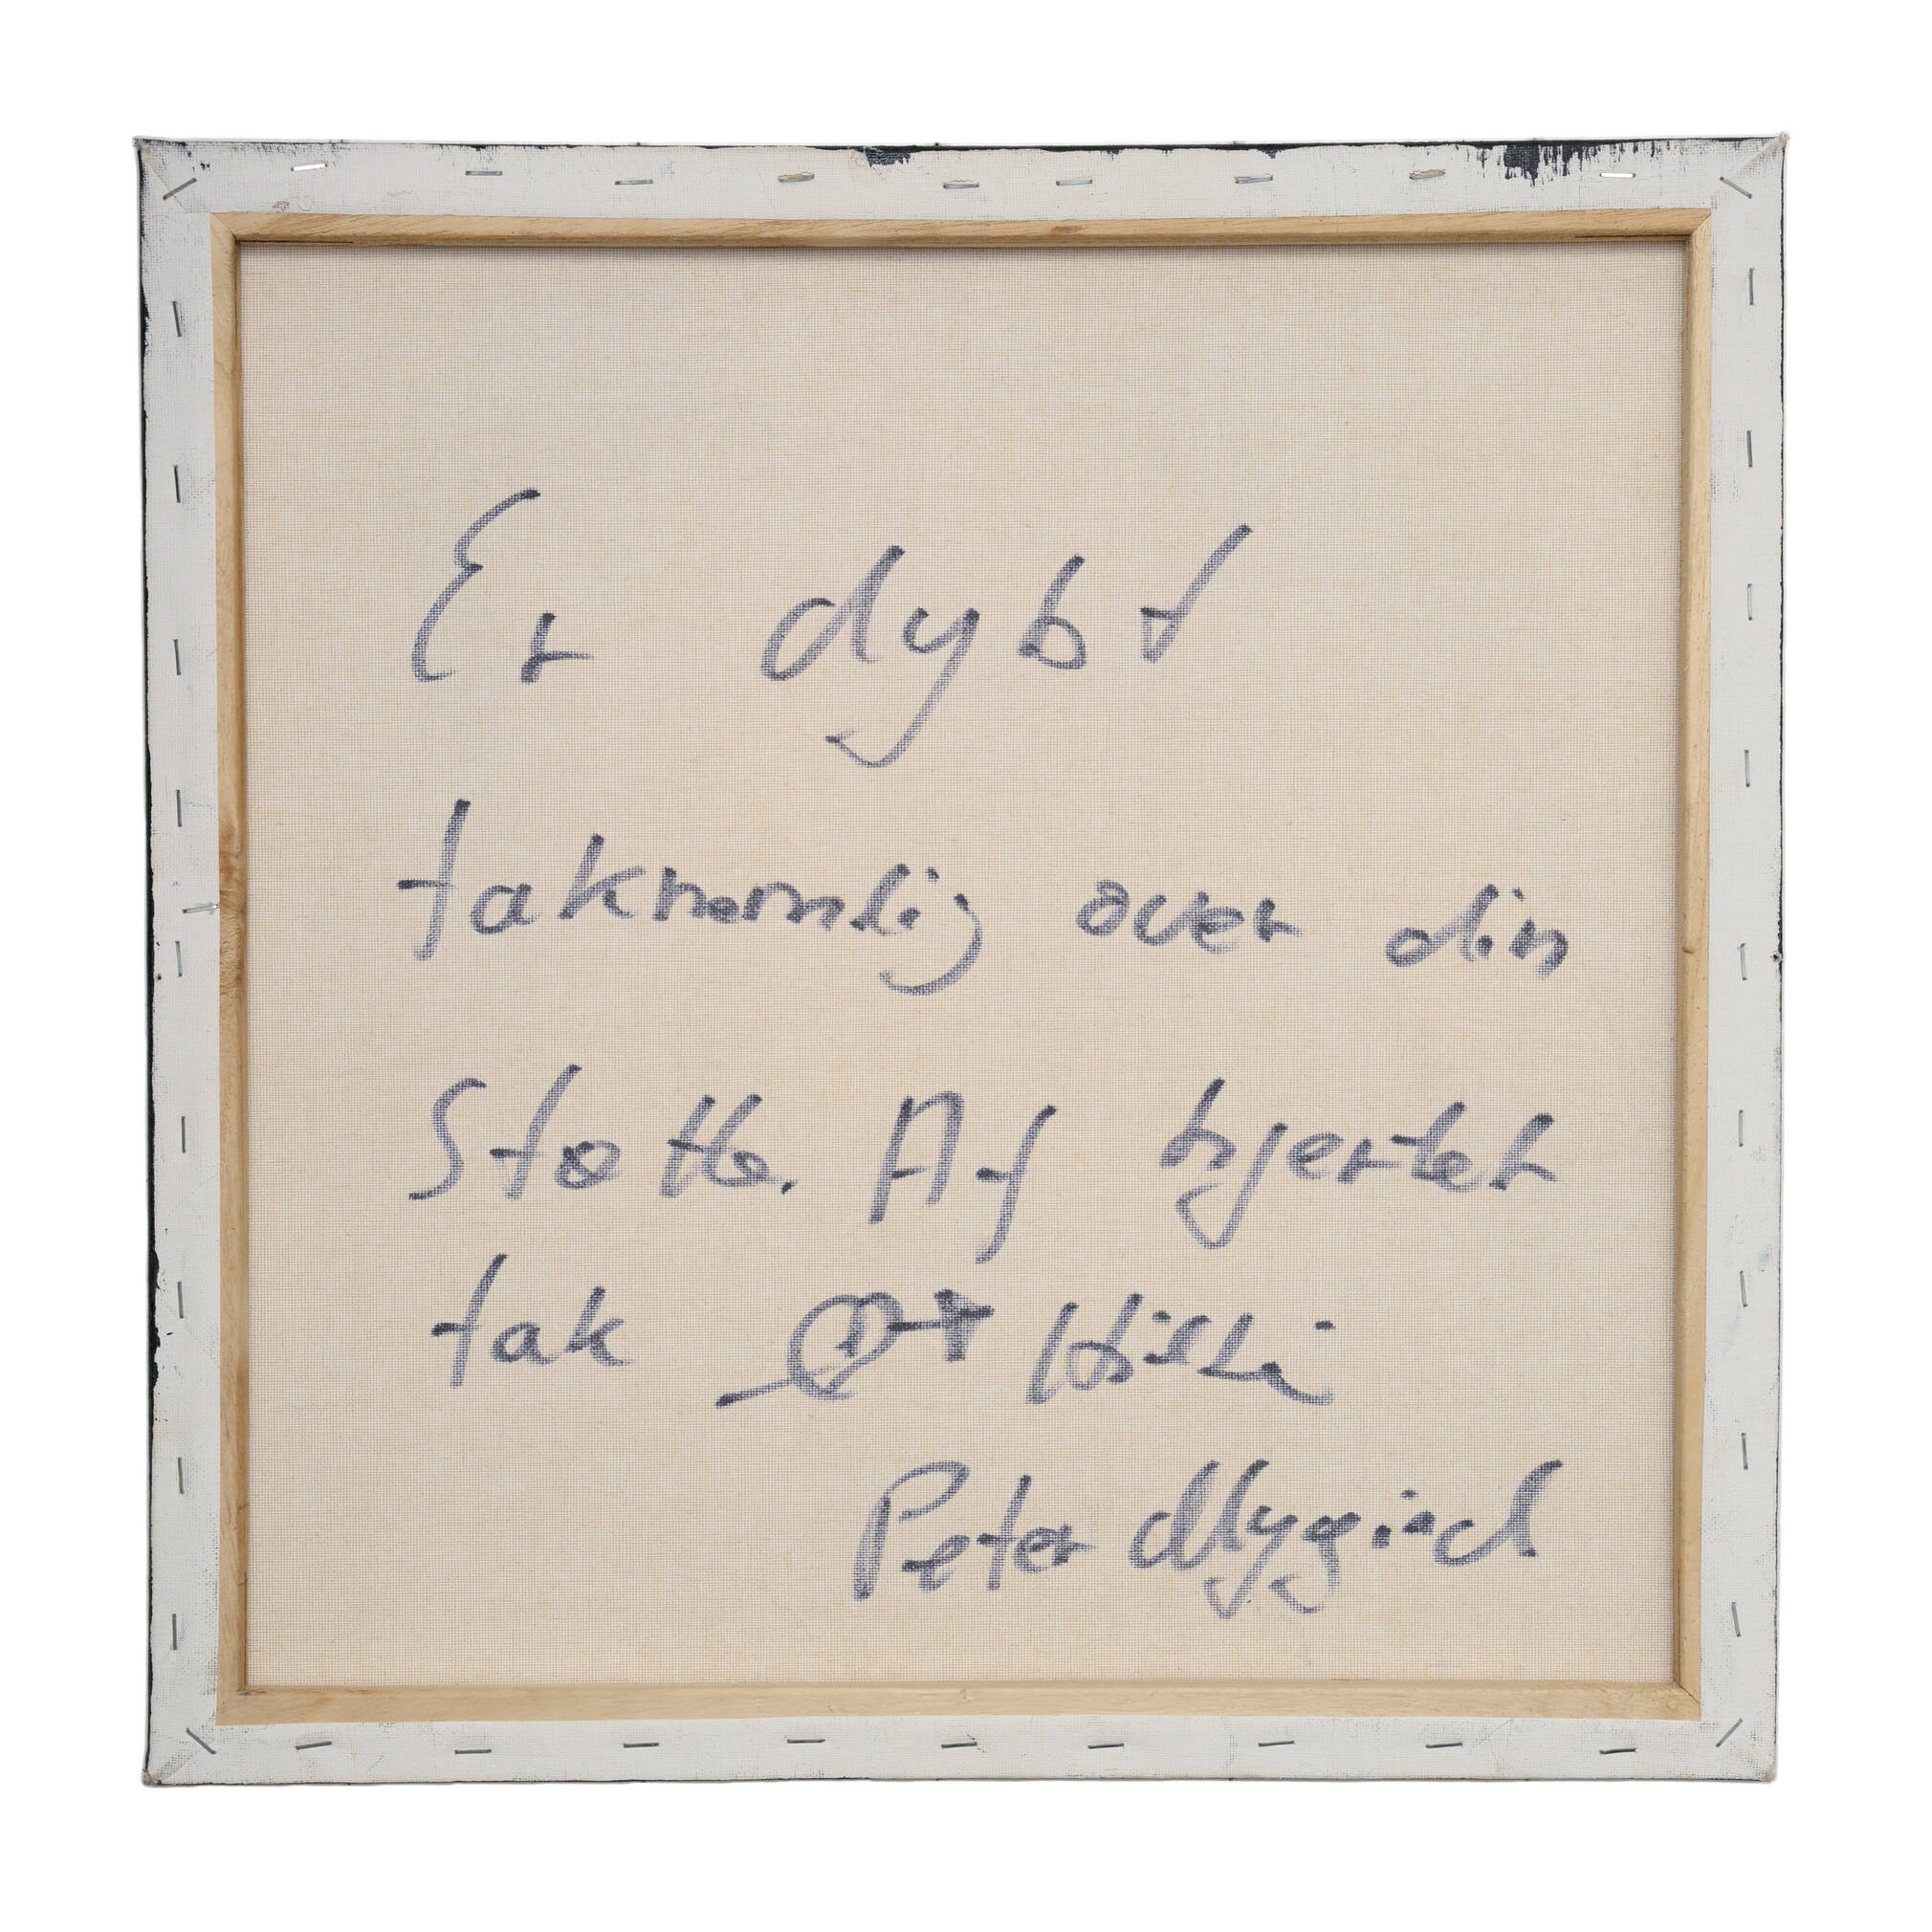 Er dybt
taknemlig over din
Støtte. Af hjertet
tak
Peter Mygind